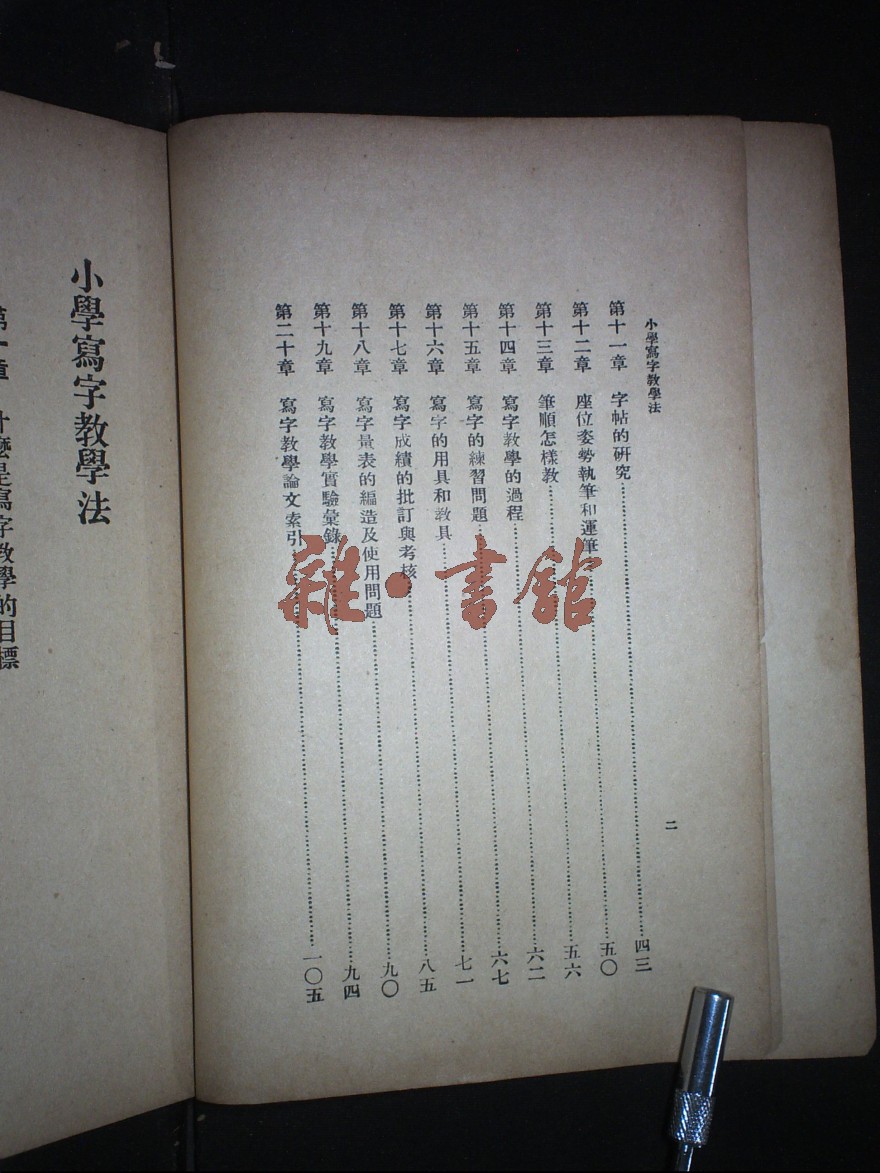 小學寫字教學法
二
第十一章 字帖的研究……四三
第十二章 座位姿勢執筆和運筆……五〇
第十三章 筆順怎樣教……五六
第十四章 寫字教學的過程……六二
第十五章 寫字的練習問題……六七
第十六章 寫字的用具和教具……七一
第十七章 寫字成績的批訂與考核……八五
第十八章 寫字量表的編造及使用問題……九〇
第十九章 寫字教學實驗彙錄……九四
第二十章 寫字教學論文索引……一〇五
小學寫字教學法
第一章 什麼是寫字教學的目標
雜·書館